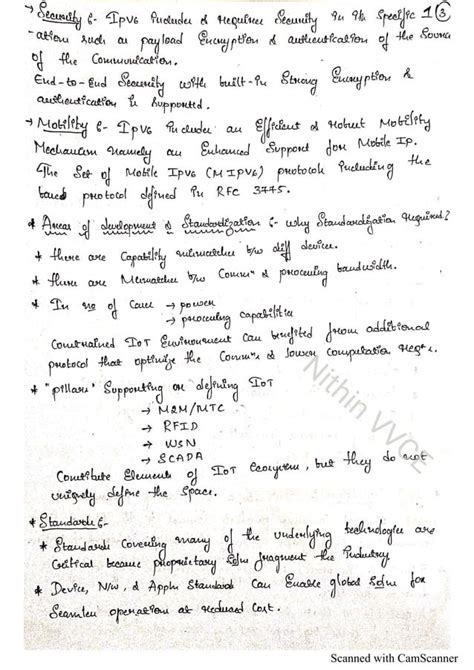 → Security :- IPv6 includes & requires Security in its specific 1 (3)
-ations such as payload Encryption & authentication of the source
of the Communication.
End-to-End Security with built-in Strong Encryption &
authentication is supported.
→ Mobility :- IPv6 includes an Efficient & Robust Mobility
Mechanism namely an Enhanced Support for Mobile IP.
The Set of Mobile IPv6 (MIPv6) protocols including the
base protocol defined in RFC 3775.
* Areas of development & Standardization :- why Standardization required?
* there are Capability mismatches b/w diff devices.
* there are Mismatches b/w Commn & processing bandwidth.
* In no of cases → power
→ processing capabilities
Constrained IoT Environment can benefited from additional
protocol that optimize the Commn & lower computation Reqts.
* "pillars" Supporting or defining IoT
→ M2M/MTC
→ RFID
→ WSN
→ SCADA
Constitute Elements of IoT Ecosystem, but they do not
uniquely define the space.
* Standards :-
* Standards Covering many of the underlying technologies are
Critical because proprietary soln fragment the Industry
* Device, N/w, & Appln Standards can Enable global soln for
Seamless operation at reduced cost.
Nithin VVCE
Scanned with CamScanner